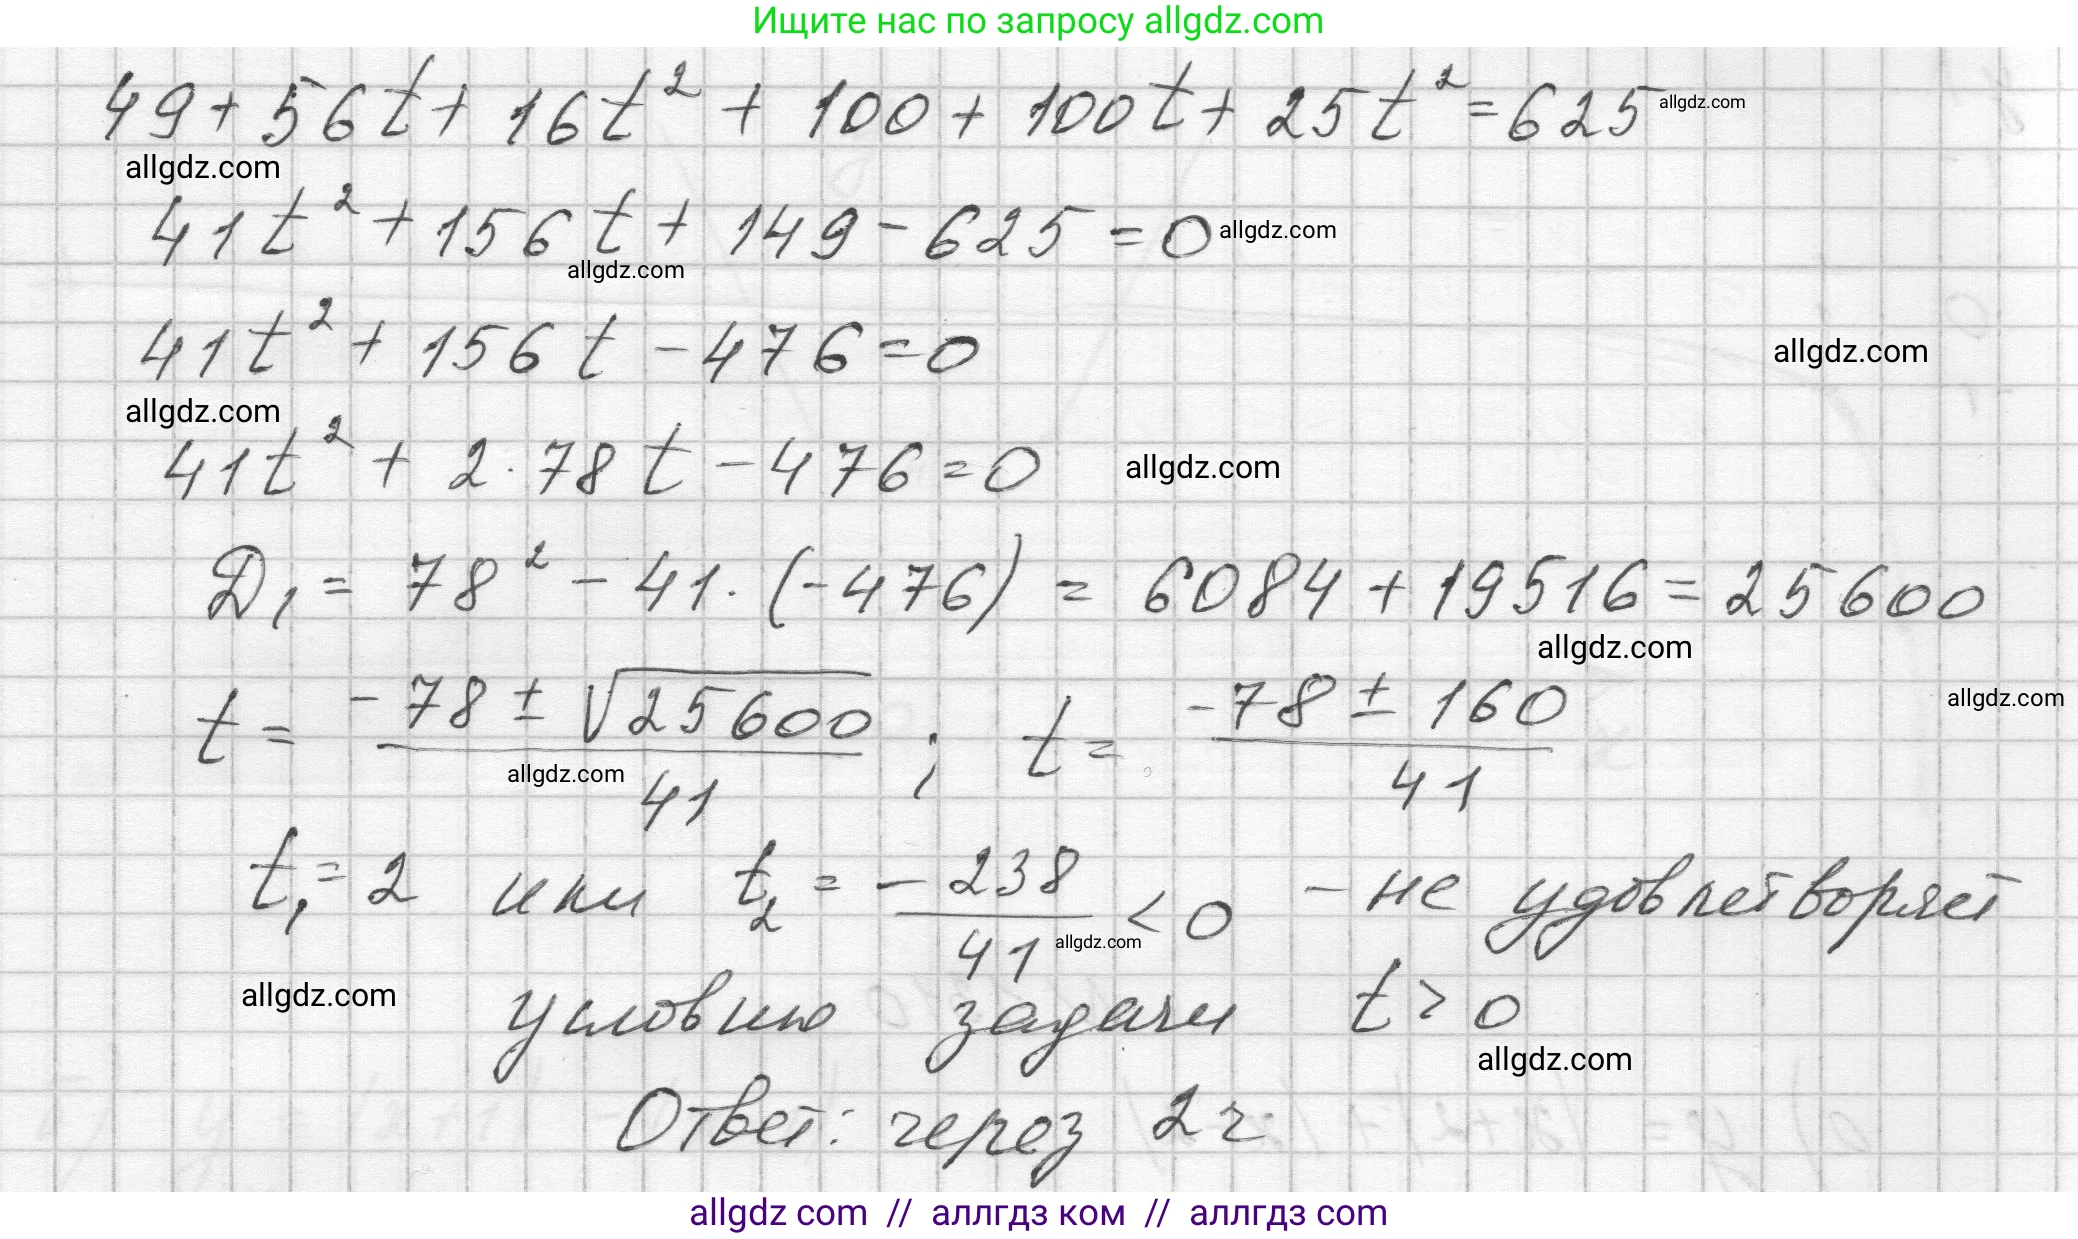 Ищите нас по запросу allgdz.com
49 + 56t + 16t² + 100 + 100t + 25t² = 625 allgdz.com
allgdz.com
41t² + 156t + 149 - 625 = 0 allgdz.com
allgdz.com
41t² + 156t - 476 = 0
allgdz.com
allgdz.com
41t² + 2·78t - 476 = 0 allgdz.com
D₁ = 78² - 41·(-476) = 6084 + 19516 = 25600
allgdz.com
t = (-78 ± √25600)/41 ; t = (-78 ± 160)/41 allgdz.com
allgdz.com
t₁ = 2 или t₂ = -238/41 < 0 - не удовлетворяет
allgdz.com
allgdz.com условию задачи t > 0
allgdz.com
Ответ: через 2 ч
allgdz com // аллгдз ком // аллгдз com